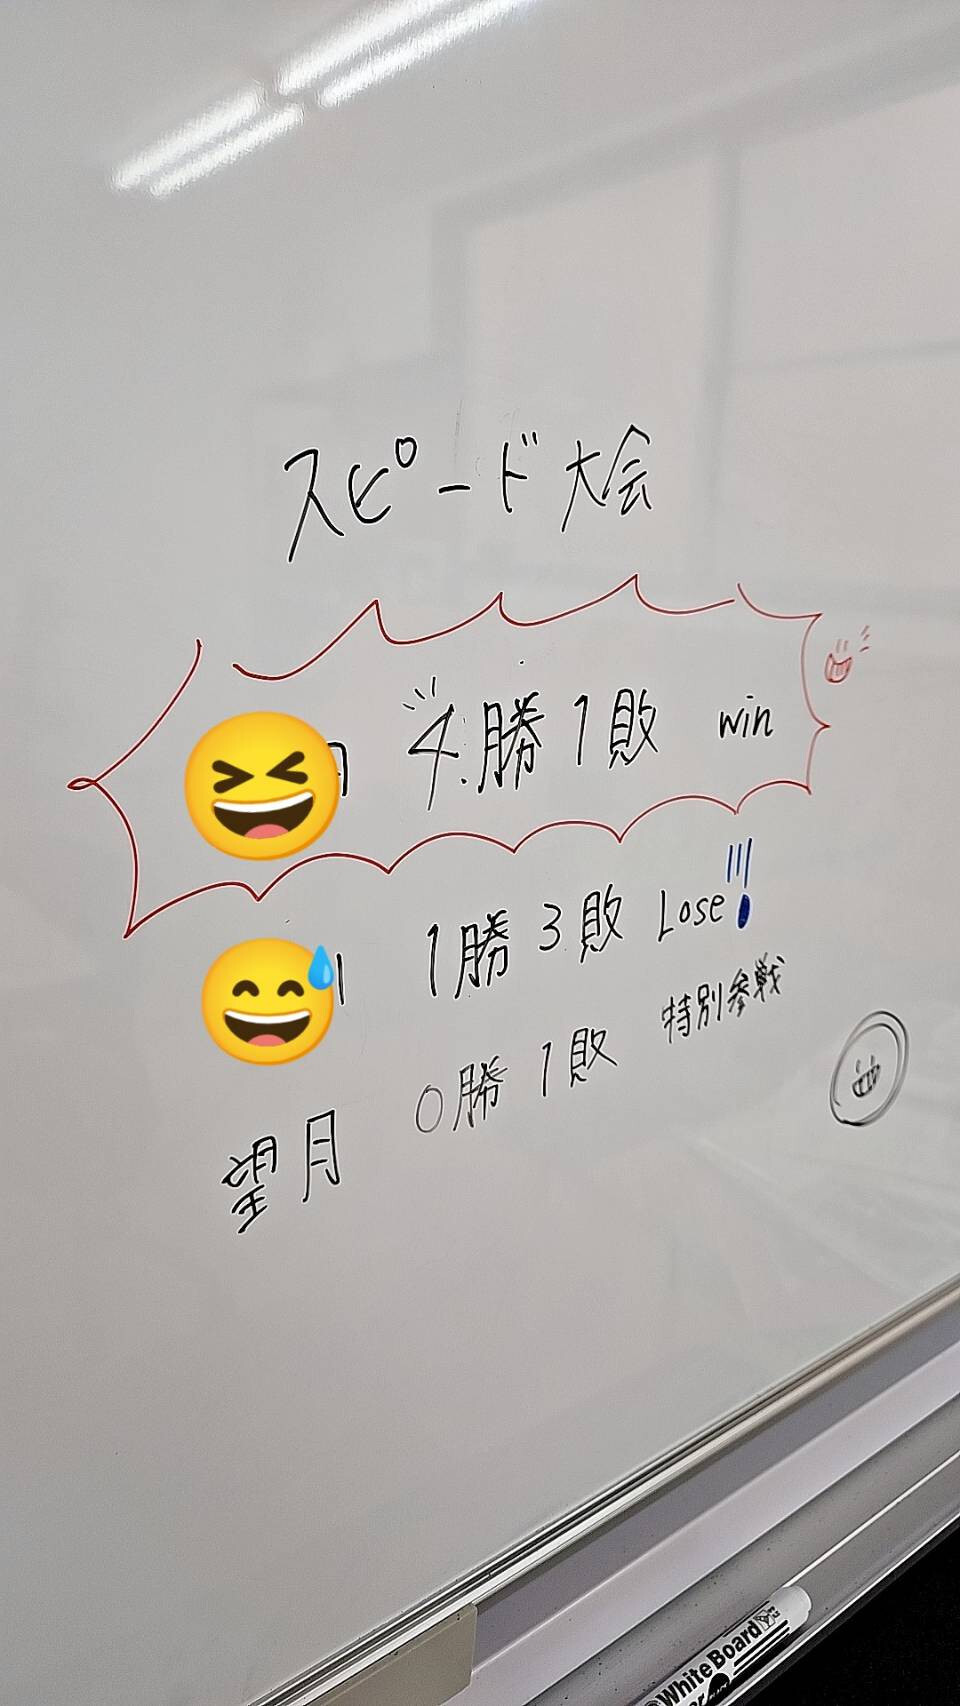 スピード大会
4勝1敗 win
1勝3敗 Lose!
望月 0勝1敗 特別参戦
WhiteBoard